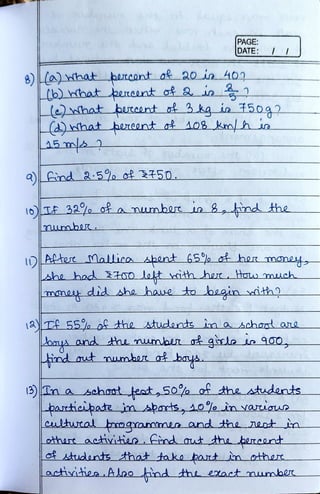 PAGE:
DATE: / /
8) (a) What percent of 20 is 40?
(b) What percent of 2 is 2/5 ?
(c) What percent of 3 kg is 750g?
(d) What percent of 108 km/h is
15 m/s ?
9) Find 2.5% of ₹750.
10) If 32% of a number is 8, find the
number.
11) After Mallica spent 65% of her money,
she had ₹700 left with her. How much
money did she have to begin with?
12) If 55% of the students in a school are
boys and the number of girls is 900,
find out number of boys.
13) In a school fest, 50% of the students
participate in sports, 10% in various
cultural programmes and the rest in
other activities. Find out the percent
of students that take part in other
activities. Also find the exact number